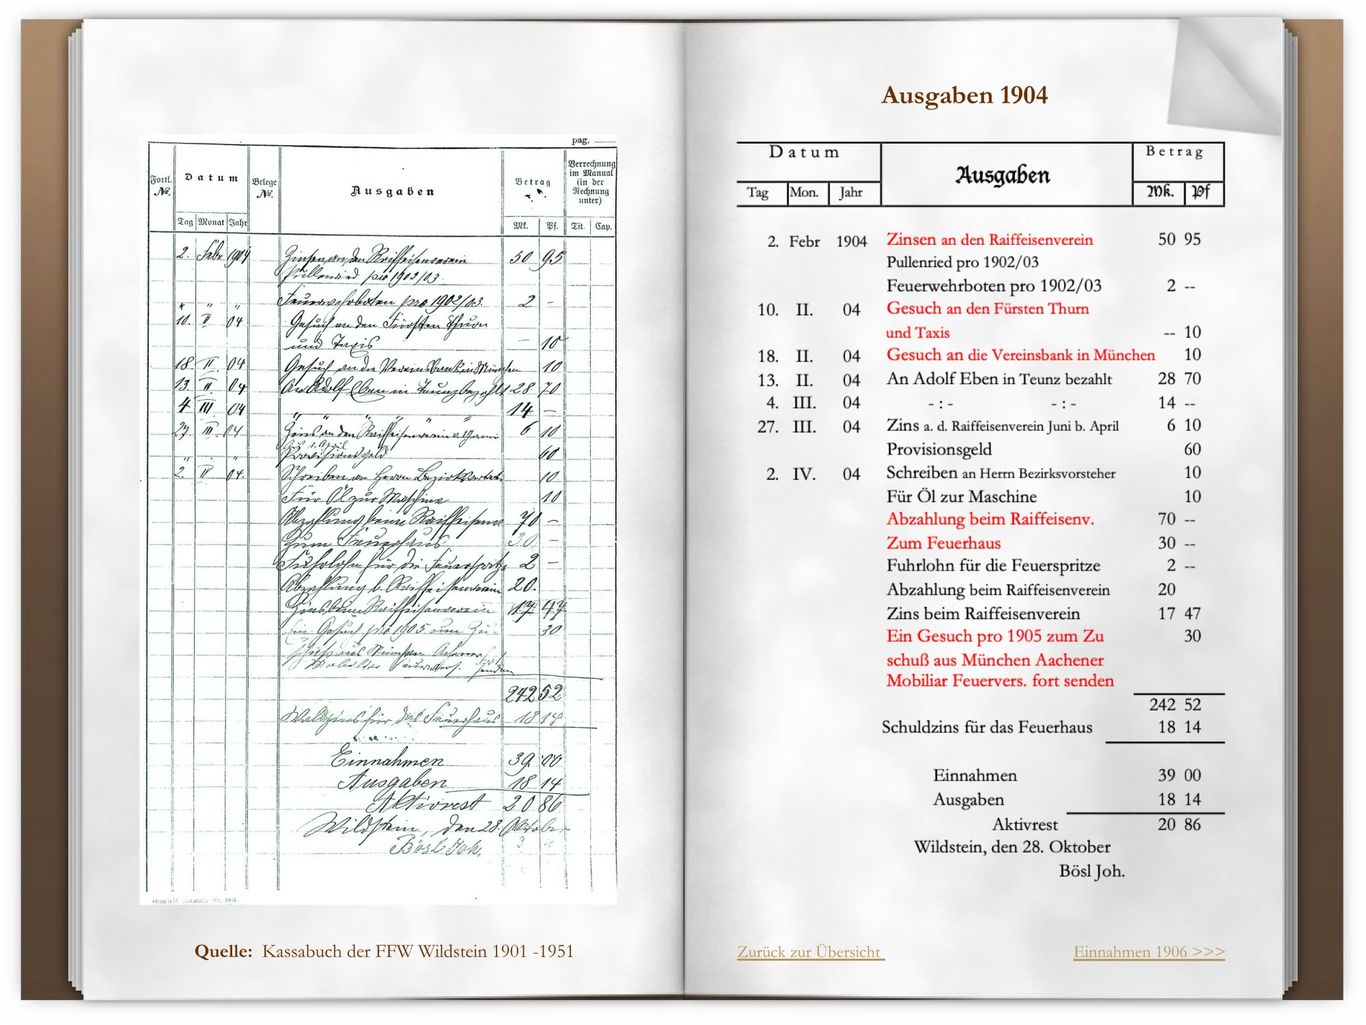 pag.
Fortl. Nr.
Datum
Belege Nr.
Ausgaben
Betrag
Verrechnung
im Manual
(in der
Rechnung
unter)
Tag Monat Jahr Mk. Pf. Tit. Cap.
2. Febr. 1904 Zinsen an den Raiffeisenverein 50 95
Pullenried pro 1902/03.
" " " Feuerwehrboten pro 1902/03. 2 –
10. II 04 Gesuch an den Fürsten Thurn
und Taxis – 10
18. II. 04 Gesuch an die Vereinsbank in München 10
13. II. 04 An Adolf Eben in Teunz bezahlt 28 70
4 III 04 " " " 14 –
27. III. 04 Zins an den Raiffeisenverein 6 10
Provisionsgeld 60
2. 04. Schreiben an Herrn Bezirks 10
Für Öl zur Maschine 10
Abzahlung beim Raiffeisenv. 70 –
Zum Feuerhaus 30 –
Fuhrlohn für die Feuerspritze 2 –
Abzahlung b. Raiffeisenverein 20.
Zins beim Raiffeisenverein 17 47
Ein Gesuch pro 1905 zum Zu- 30
schuß aus München Aachener
Mobiliar Feuervers. fort senden
242 52
für das Feuerhaus 18 14
Einnahmen 39 00
Ausgaben 18 14
Aktivrest 20 86
Wildstein, den 28. Oktober
Bösl Joh.
Quelle: Kassabuch der FFW Wildstein 1901 -1951
Ausgaben 1904
Datum Ausgaben Betrag
Tag Mon. Jahr Mk. Pf
2. Febr 1904 Zinsen an den Raiffeisenverein 50 95
Pullenried pro 1902/03
Feuerwehrboten pro 1902/03 2 --
10. II. 04 Gesuch an den Fürsten Thurn
und Taxis -- 10
18. II. 04 Gesuch an die Vereinsbank in München 10
13. II. 04 An Adolf Eben in Teunz bezahlt 28 70
4. III. 04 - : - - : - 14 --
27. III. 04 Zins a. d. Raiffeisenverein Juni b. April 6 10
Provisionsgeld 60
2. IV. 04 Schreiben an Herrn Bezirksvorsteher 10
Für Öl zur Maschine 10
Abzahlung beim Raiffeisenv. 70 --
Zum Feuerhaus 30 --
Fuhrlohn für die Feuerspritze 2 --
Abzahlung beim Raiffeisenverein 20
Zins beim Raiffeisenverein 17 47
Ein Gesuch pro 1905 zum Zu 30
schuß aus München Aachener
Mobiliar Feuervers. fort senden
242 52
Schuldzins für das Feuerhaus 18 14
Einnahmen 39 00
Ausgaben 18 14
Aktivrest 20 86
Wildstein, den 28. Oktober
Bösl Joh.
Zurück zur Übersicht
Einnahmen 1906 >>>